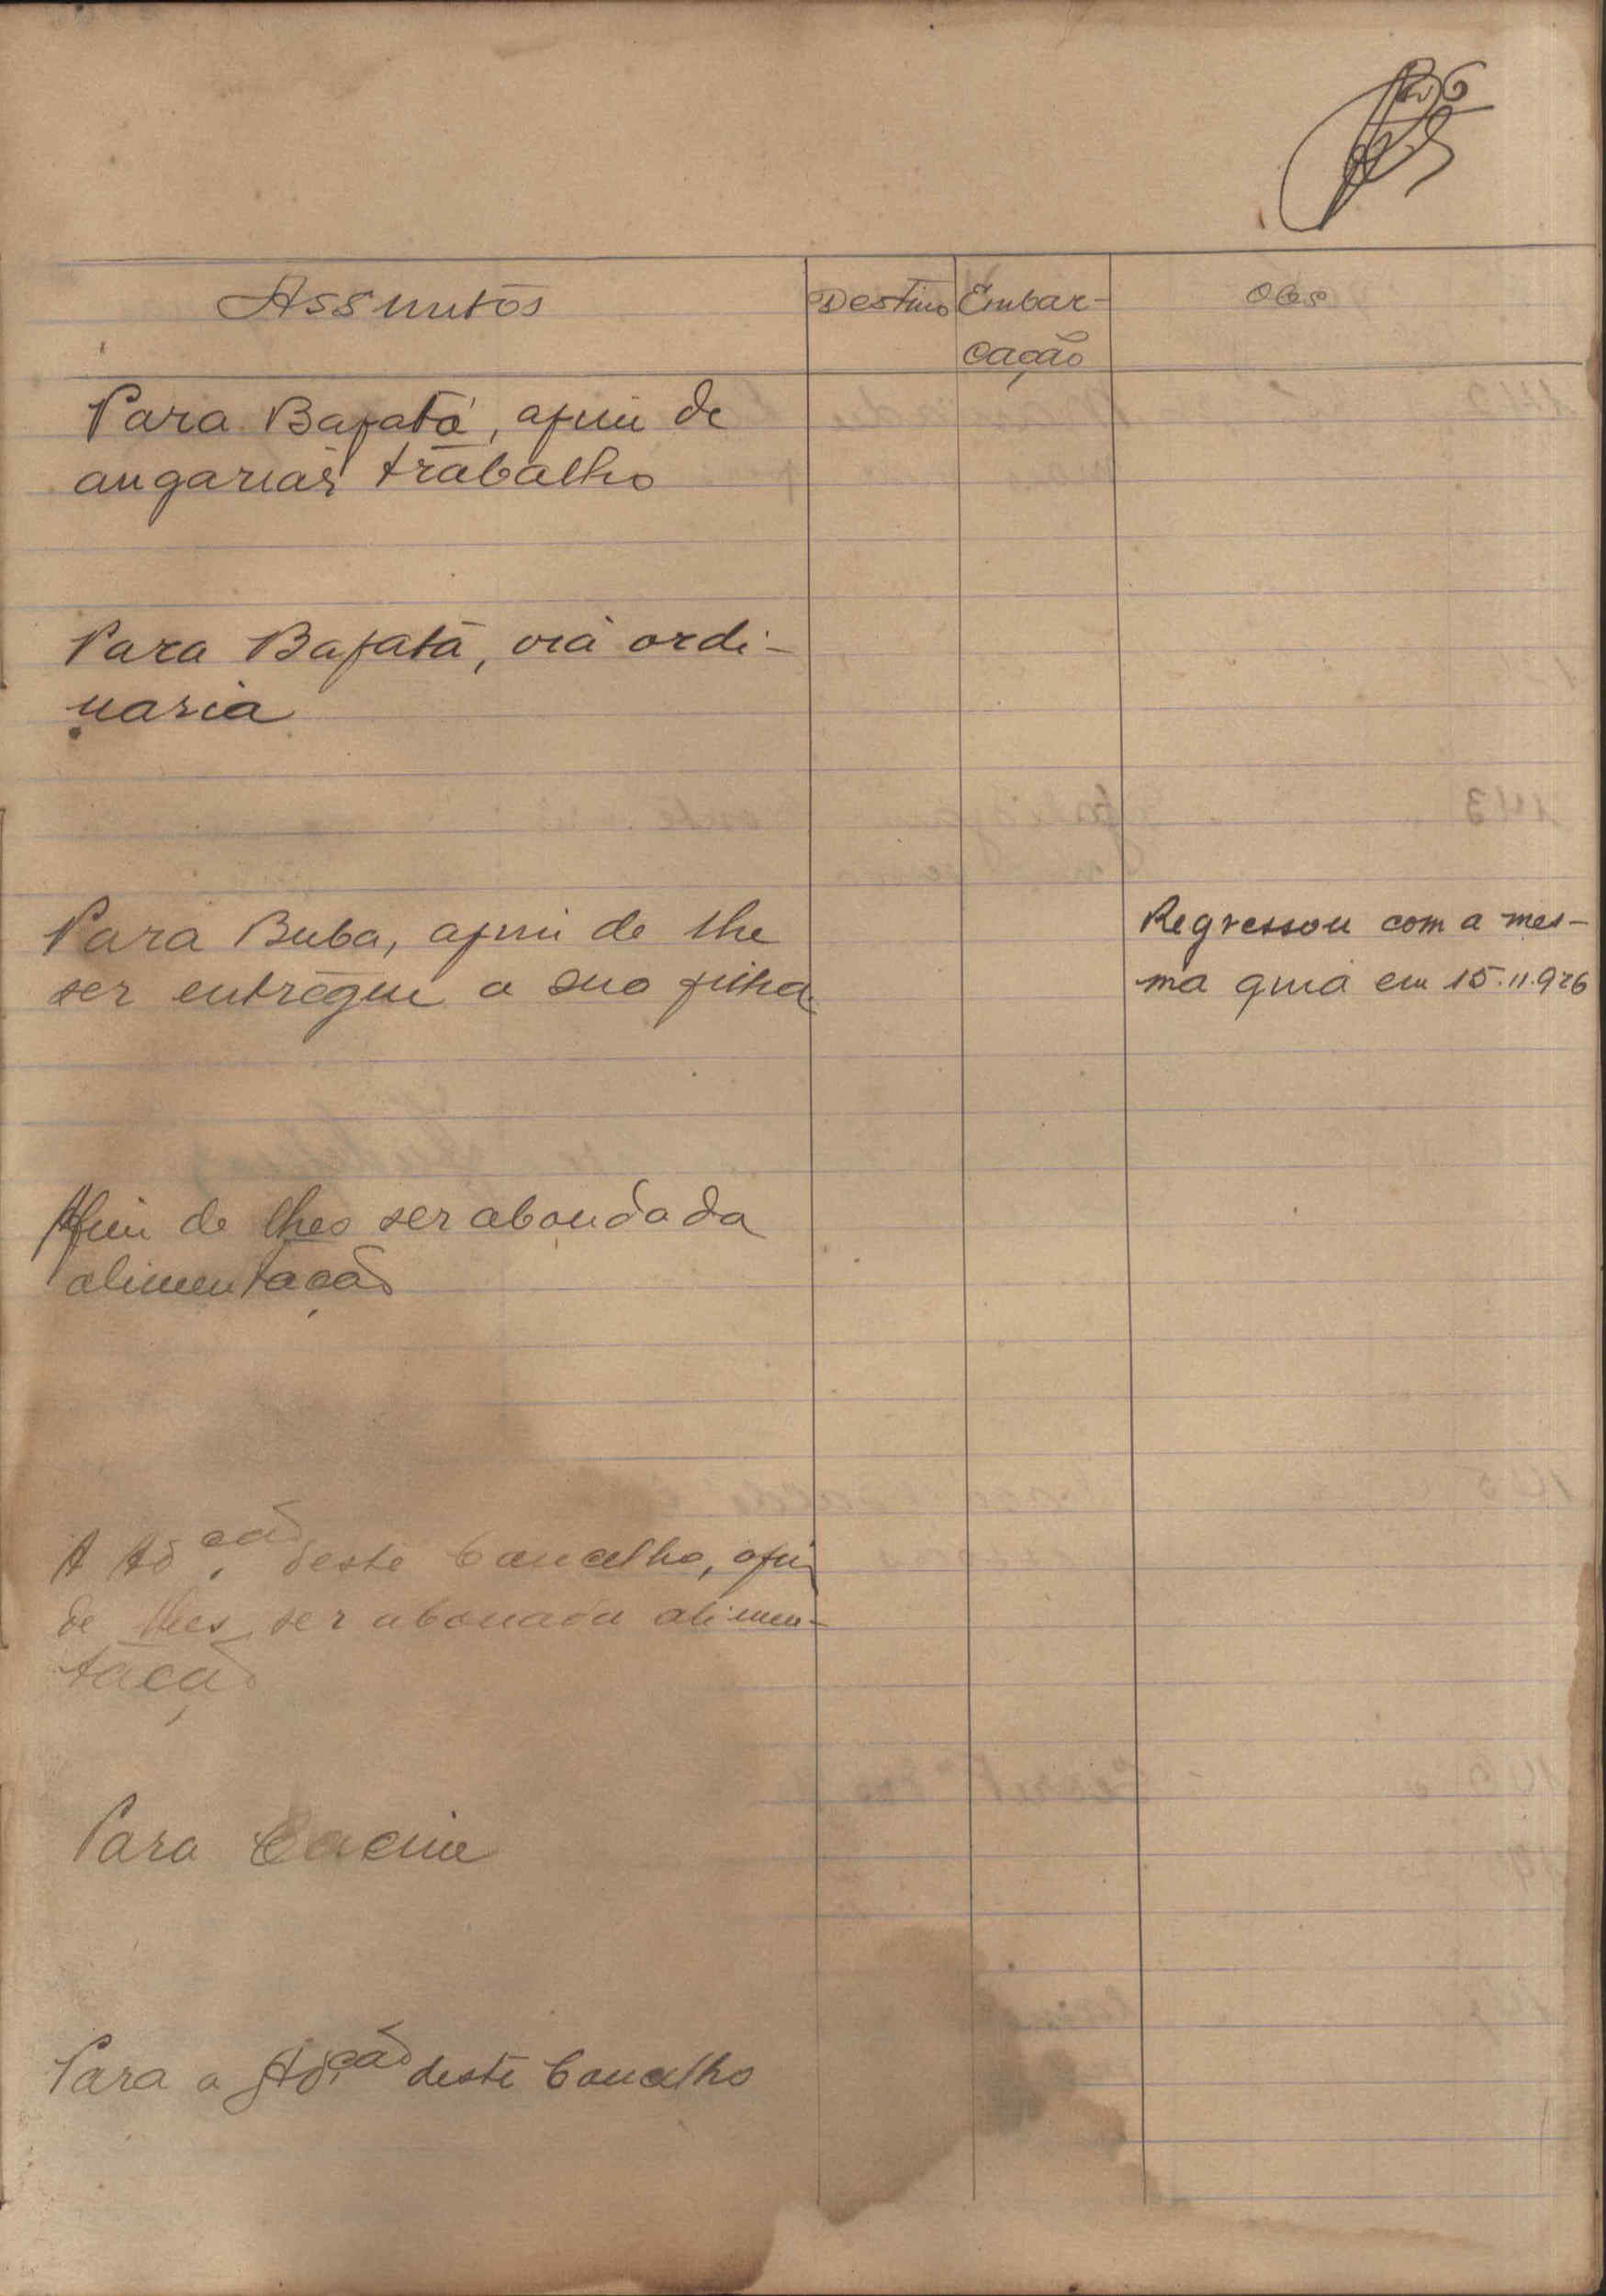 Assuntos
Destino
Embar-
cação
Obs
Para Bafatá, afim de
angariar trabalho
Para Bafatá, via ordi-
naria
Para Buba, afim de lhe
ser entregue a sua filha
Regressou com a mes-
ma guia em 15.11.926
Afim de lhes ser abonada
alimentação
A Ad.ção deste Concelho, afim
de lhes ser abonada alimen-
tação
Para Cacine
Para a Ad.ção deste Concelho